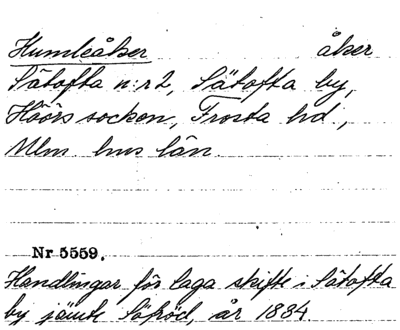 Humleåker åker
Sätofta n:r 2, Sätofta by,
Höörs socken, Frosta hd,
Mlm hus län.
Nr 5559.
Handlingar för laga skifte i Sätofta
by jämte år 1884.